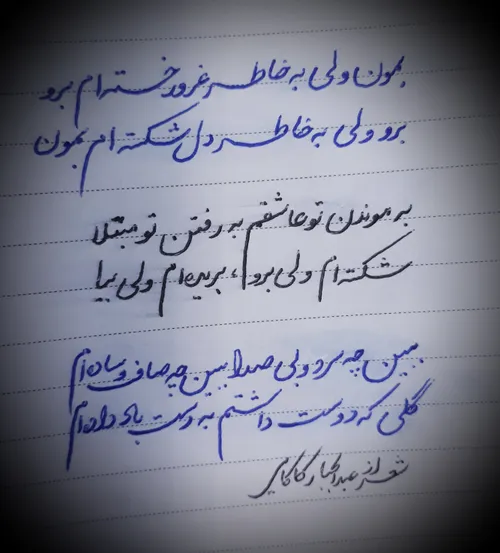 بمون ولی به خاطر غرور خسته ام برو
برو ولی به خاطر دل شکسته ام بمون
به موندن تو عاشقم به رفتن تو مبتلا
شکسته ام ولی برو، بریده ام ولی بیا
ببین چه سرد و بی صدا ببین چه صاف و ساده ام
گلی که دوست داشتم به دست باد داده ام
شعر از عبدالجبار کاکایی